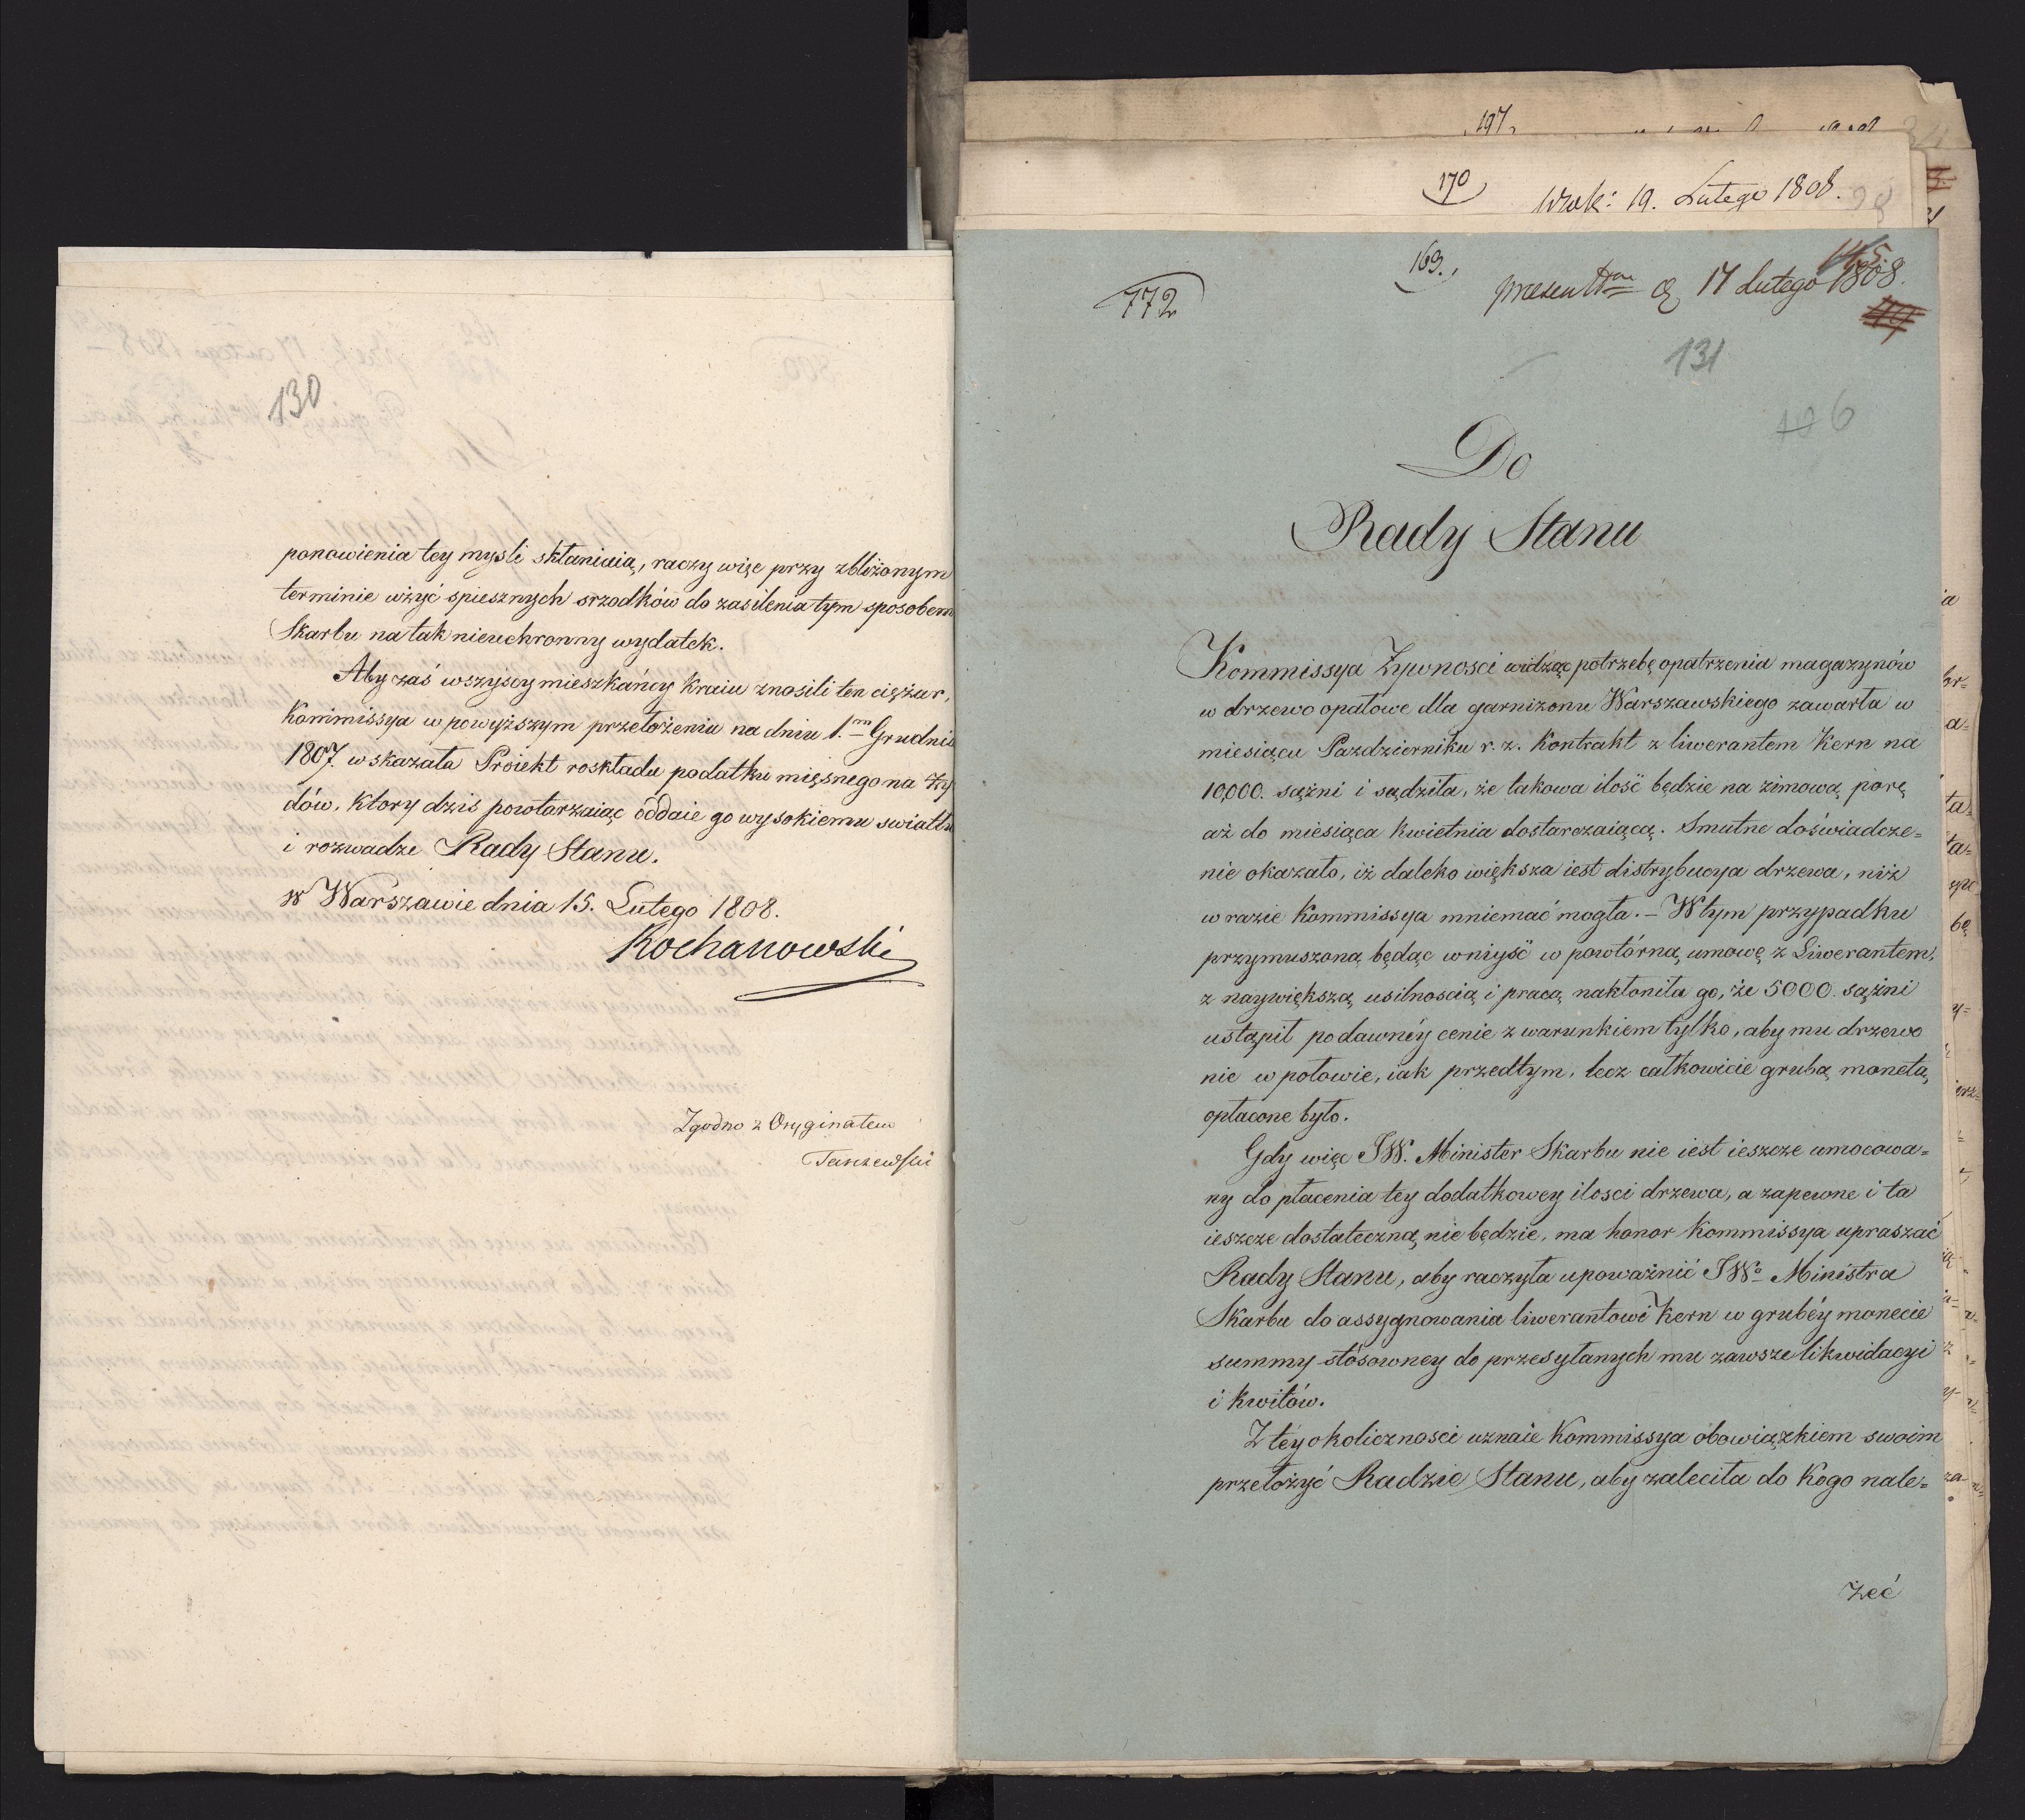 130
ponowienia tey mysli skłaniaią, raczy więc przy zbliżonym
terminie użyć spiesznych srzodków do zasilenia tym sposobem
Skarbu na tak nieuchronny wydatek.
Aby zaś wszyscy mieszkańcy Kraiu znosili ten ciężar,
Kommissya w powyższym przełożeniu na dniu 1.m Grudnia
1807. wskazała Proiekt roskładu podatku mięsnego na Ży
dów, Ktory dzis powtarzaiąc oddaie go wysokiemu swiatłu
i rozwadze Rady Stanu.
w Warszawie dnia 15. Lutego 1808.
Kochanowski
Zgodno z Oryginałem
197.
170
19. Lutego 1808.
163.
772
17 Lutego 1808.
131
6
Do
Rady Stanu
Kommissya Żywnosci widząc potrzebę opatrzenia magazynów
w drzewo opałowe dla garnizonu Warszawskiego zawarła w
miesiącu Pazdzierniku r. z. Kontrakt z liwerantem Kern na
10,000. sążni i sądziła, że takowa ilość będzie na zimową porę
aż do miesiąca Kwietnia dostarczaiącą. Smutne doświadcze=
nie okazało, iż daleko większa iest distrybucya drzewa, niż
w razie Kommissya mniemać mogła. – W tym przypadku
przymuszoną będąc wniyść w powtórną umowę z Liwerantem,
z naywiększą usilnoscią i pracą nakłoniła go, że 5000. sążni
ustąpił po dawnéy cenie z warunkiem tylko, aby mu drzewo
nie w połowie, iak przedtym, lecz całkowicie grubą monetą,
opłacone było.
Gdy więc JW. Minister Skarbu nie iest ieszcze umocowa=
ny do płacenia tey dodatkowey ilosci drzewa, a zapewne i ta
ieszcze dostateczną nie będzie, ma honor Kommissya upraszać
Rady Stanu, aby raczyła upoważnić JWo Ministra
Skarbu do assygnowania liwerantowi Kern w grubéy monecie
summy stósowney do przesyłanych mu zawsze likwidacyi
i kwitów.
Z téy okolicznosci uznaie Kommissya obowiązkiem swoim
przełożyć Radzie Stanu, aby zaleciła do Kogo nale=
żeć